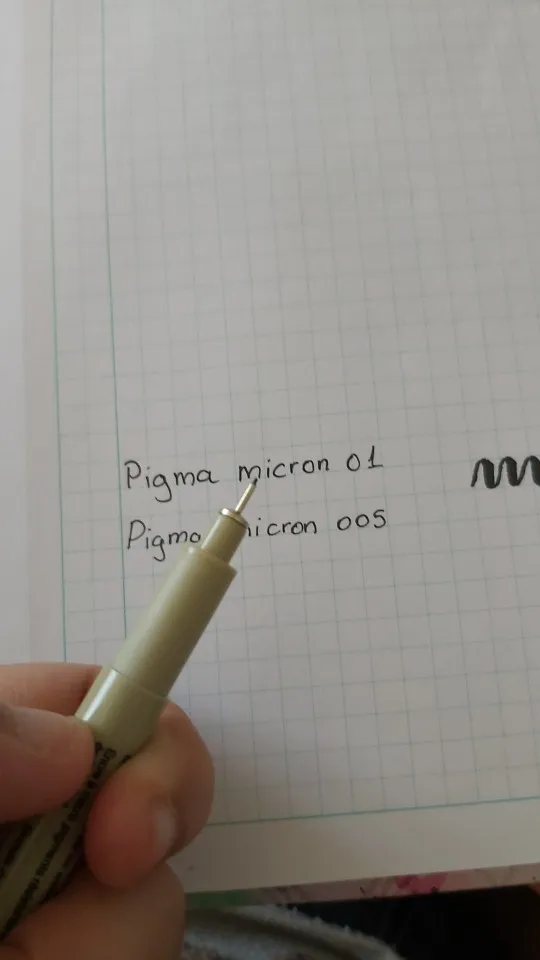 Pigma micron 01
Pigma micron 005